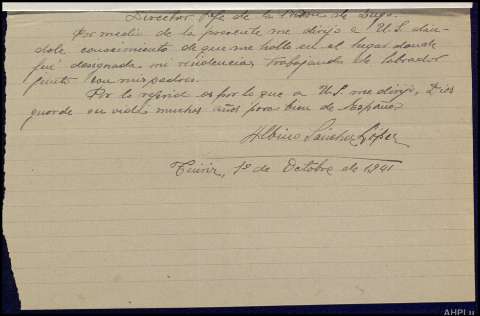 Director Jefe de la Prisión de Lugo.
Por medio de la presente me dirijo a U.S. dan-
dole conocimiento de que me hallo en el lugar donde
fué designada mi residencia, trabajando de labrador
junto con mis padres.
Por lo referido es por lo que a U.S. me dirijo, Dios
guarde su vida muchos años para bien de España
Albino Sánchez López
1º de Octubre de 1941
AHPLu